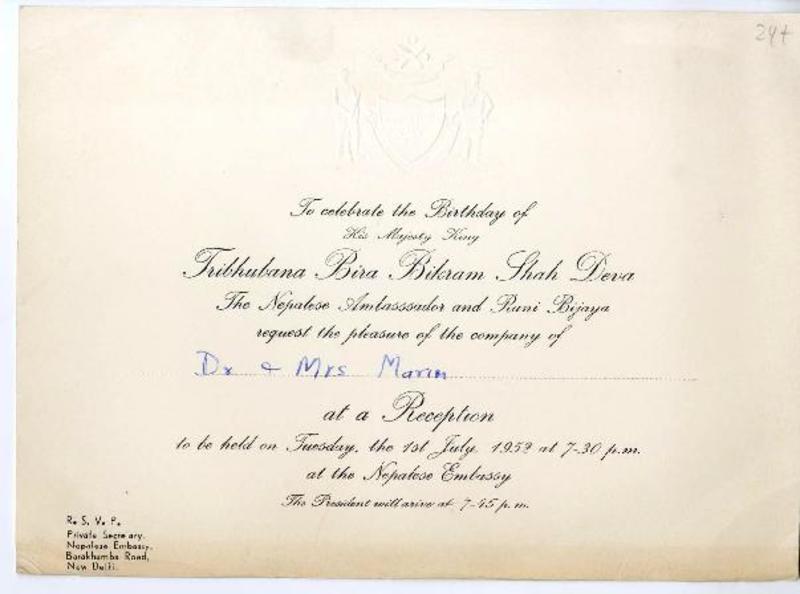 244
To celebrate the Birthday of
His Majesty King
Tribhubana Bira Bikram Shah Deva
The Nepalese Ambasssador and Rani Bijaya
request the pleasure of the company of
Dr & Mrs
at a Reception
to be held on Tuesday, the 1st July, 1952 at 7-30 p.m.
at the Nepalese Embassy
The President will arive at 7-45 p.m.
R. S. V. P.
Private Secretary,
Nepalese Embassy,
Barakhamba Road,
New Delhi.